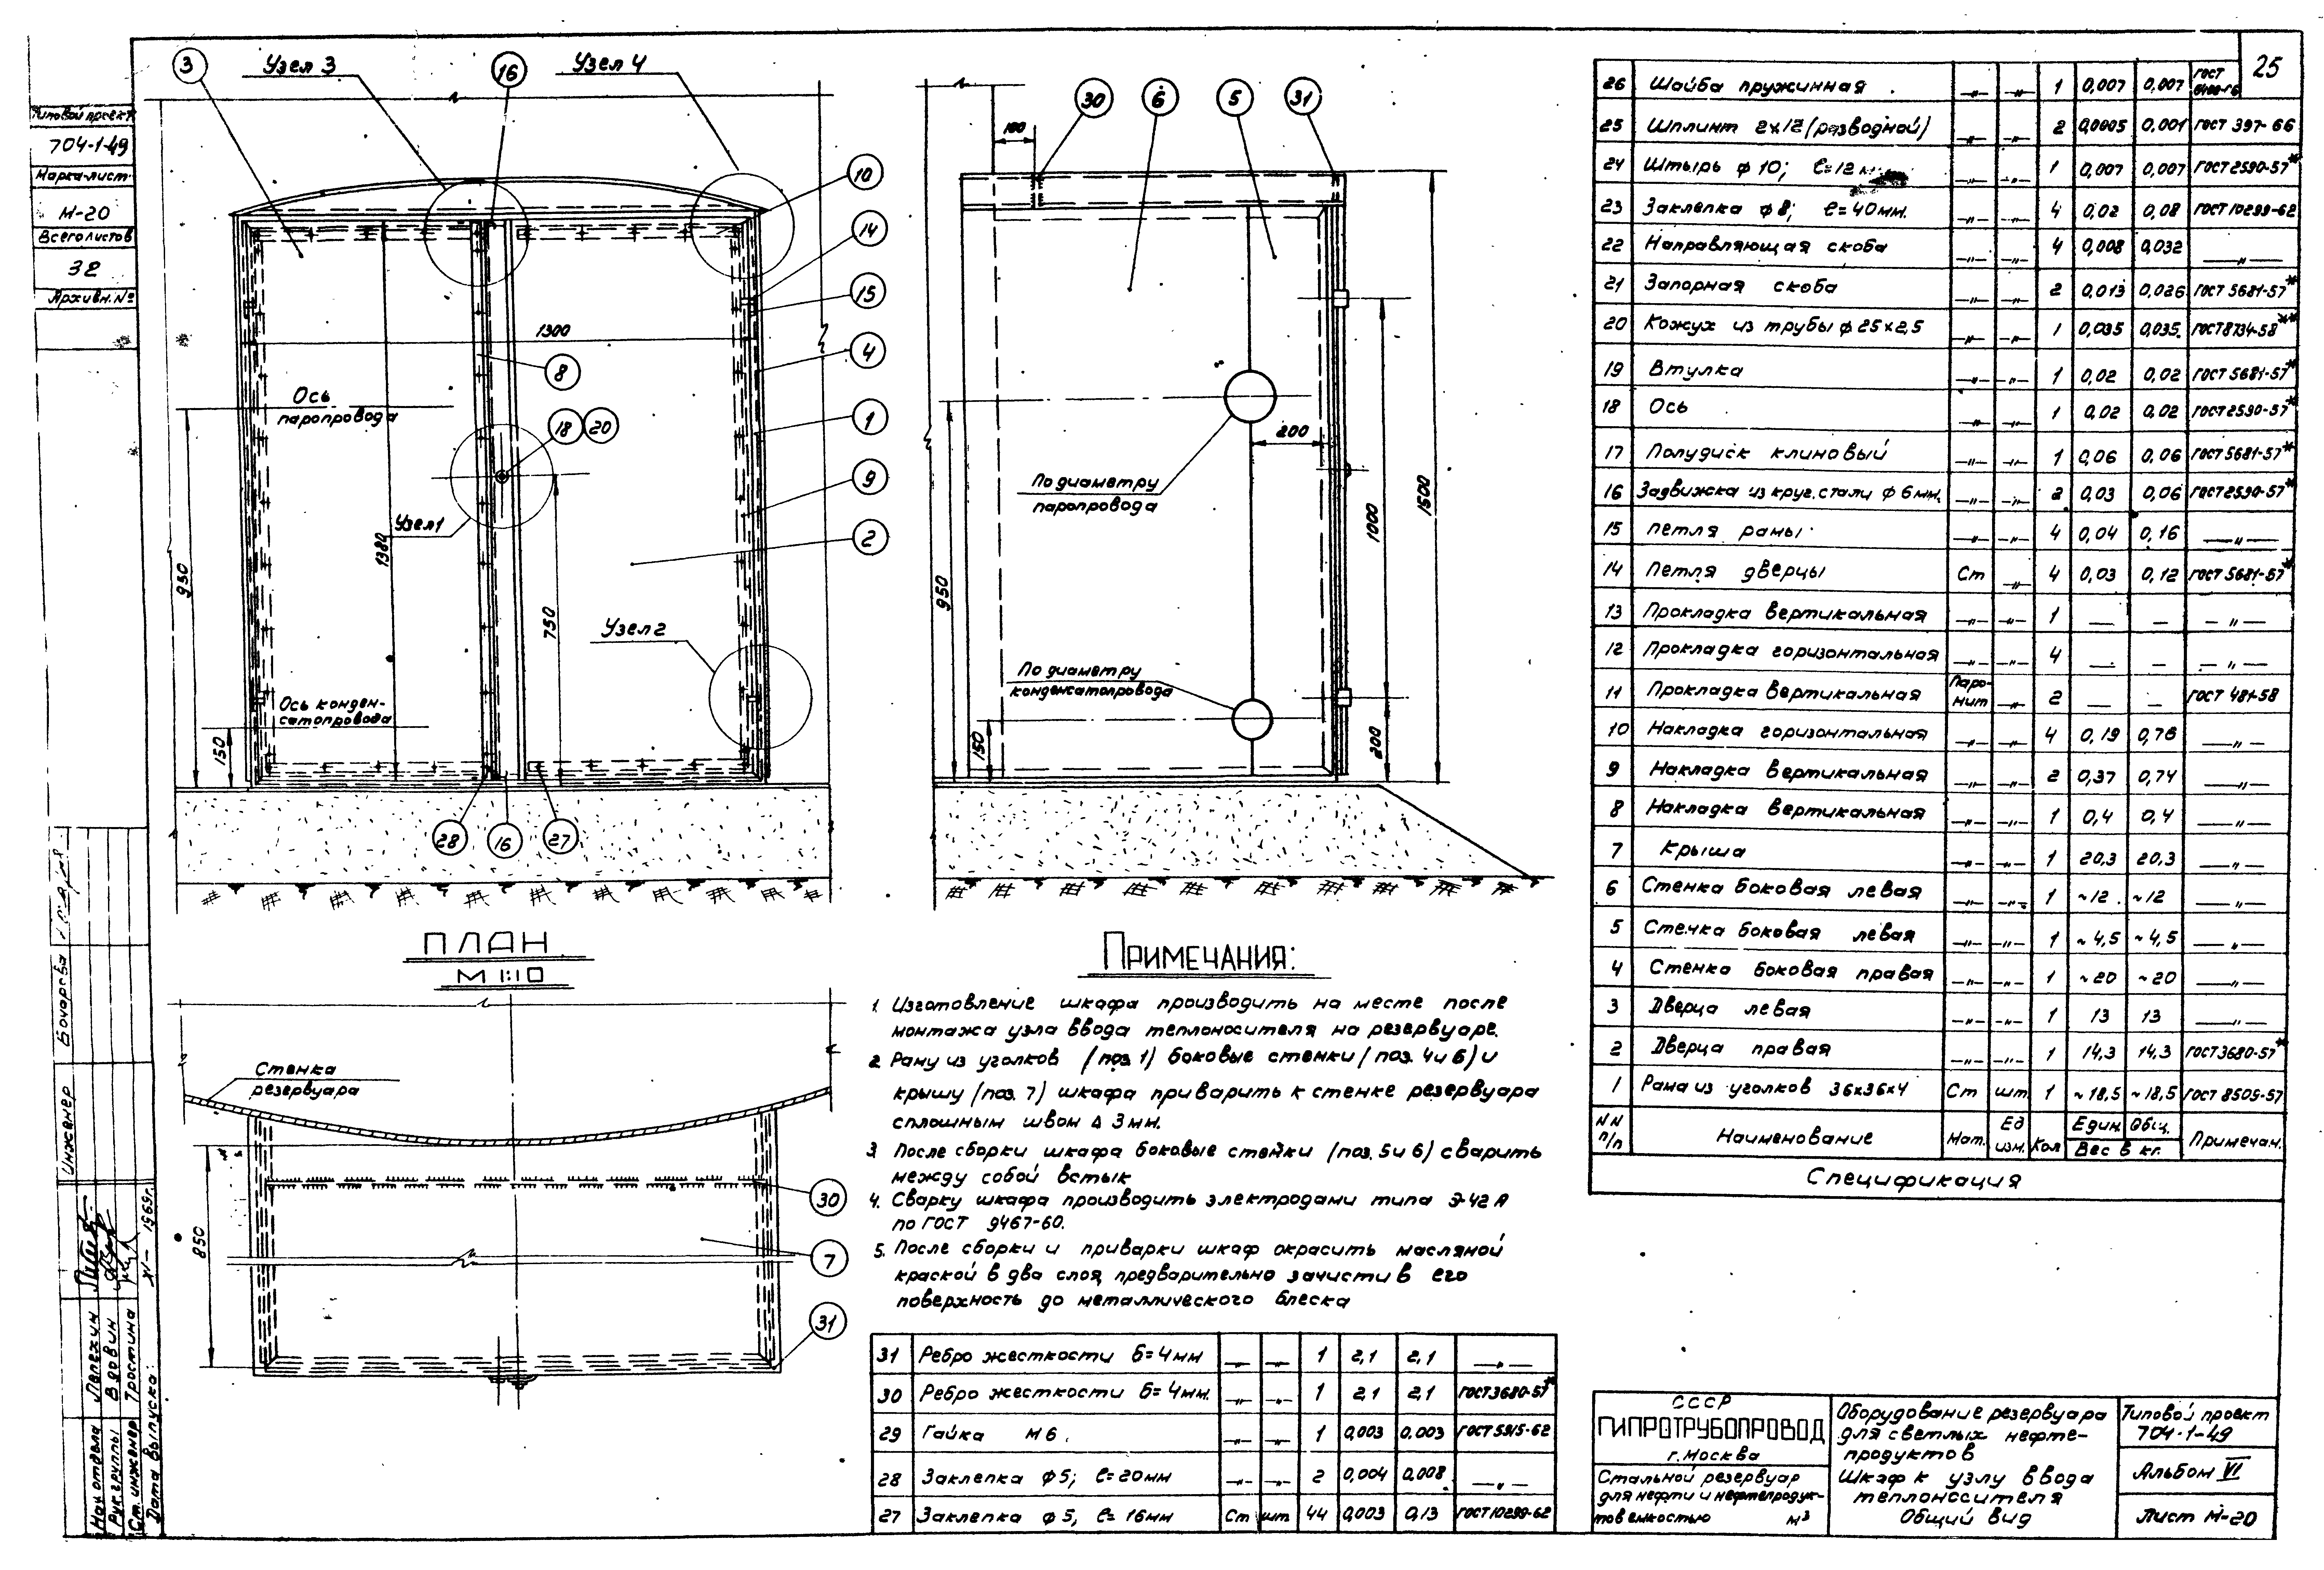 25
Типовой проект
704-1-49
Марка-лист
М-20
Всего листов
32
Архивн. №
3
Узел 3
16
Узел 4
10
14
15
4
1
9
2
8
18
20
1300
Ось
паропровода
Узел 1
1380
930
750
Узел 2
Ось конден-
сатопровода
150
28
16
27
30
6
5
31
100
200
По диаметру
паропровода
950
1000
1500
По диаметру
конденсатопровода
150
200
ПЛАН
М 1:10
Стенка
резервуара
850
30
7
31
Примечания:
1. Изготовление шкафа производить на месте после
монтажа узла ввода теплоносителя на резервуаре.
2. Раму из уголков (поз. 1) боковые стенки (поз. 4 и 6) и
крышу (поз. 7) шкафа приварить к стенке резервуара
сплошным швом Δ 3мм.
3. После сборки шкафа боковые стенки (поз. 5 и 6) сварить
между собой встык
4. Сварку шкафа производить электродами типа Э-42А
по ГОСТ 9467-60.
5. После сборки и приварки шкаф окрасить масляной
краской в два слоя, предварительно зачистив его
поверхность до металлического блеска
31 Ребро жесткости б=4мм —„— —„— 1 2,1 2,1 —„—
30 Ребро жесткости б=4мм. —„— —„— 1 2,1 2,1 ГОСТ 3680-57*
29 Гайка М6 —„— —„— 1 0,003 0,003 ГОСТ 5915-62
28 Заклепка ф5; ℓ=20мм —„— —„— 2 0,004 0,008 —„—
27 Заклепка ф5, ℓ=16мм Ст шт 44 0,003 0,13 ГОСТ 10299-62
26 Шайба пружинная —„— —„— 1 0,007 0,007 ГОСТ
25 Шплинт 2х12 (разводной) —„— —„— 2 0,0005 0,001 ГОСТ 397-66
24 Штырь ф10; ℓ=12м —„— —„— 1 0,007 0,007 ГОСТ 2590-57*
23 Заклепка ф8; ℓ=40мм. —„— —„— 4 0,02 0,08 ГОСТ 10299-62
22 Направляющая скоба —„— —„— 4 0,008 0,032 —„—
21 Запорная скоба —„— —„— 2 0,013 0,026 ГОСТ 5681-57*
20 Кожух из трубы ф25х2,5 —„— —„— 1 0,035 0,035 ГОСТ 8734-58**
19 Втулка —„— —„— 1 0,02 0,02 ГОСТ 5681-57*
18 Ось —„— —„— 1 0,02 0,02 ГОСТ 2590-57*
17 Полудиск клиновый —„— —„— 1 0,06 0,06 ГОСТ 5681-57*
16 Задвижка из круг. стали ф6мм. —„— —„— 2 0,03 0,06 ГОСТ 2590-57*
15 петля рамы —„— —„— 4 0,04 0,16 —„—
14 Петля дверцы Ст —„— 4 0,03 0,12 ГОСТ 5681-57*
13 Прокладка вертикальная —„— —„— 1 — — —„—
12 Прокладка горизонтальная —„— —„— 4 — — —„—
11 Прокладка вертикальная Паро-нит —„— 2 — — ГОСТ 481-58
10 Накладка горизонтальная —„— —„— 4 0,19 0,76 —„—
9 Накладка вертикальная —„— —„— 2 0,37 0,74 —„—
8 Накладка вертикальная —„— —„— 1 0,4 0,4 —„—
7 Крыша —„— —„— 1 20,3 20,3 —„—
6 Стенка боковая левая —„— —„— 1 ~12 ~12 —„—
5 Стенка боковая левая —„— —„— 1 ~4,5 ~4,5 —„—
4 Стенка боковая правая —„— —„— 1 ~20 ~20 —„—
3 Дверца левая —„— —„— 1 13 13 —„—
2 Дверца правая —„— —„— 1 14,3 14,3 ГОСТ 3680-57*
1 Рама из уголков 36х36х4 Ст шт 1 ~18,5 ~18,5 ГОСТ 8509-57
NN п/п Наименование Мат. Ед. изм. Кол Един. Общ. Вес в кг. Примечан.
Спецификация
СССР
ГИПРОТРУБОПРОВОД
г. Москва
Стальной резервуар
для нефти и нефтепродук-
тов емкостью м³
Оборудование резервуара
для светлых нефте-
продуктов
Шкаф к узлу ввода
теплоносителя
Общий вид
Типовой проект
704-1-49
Альбом VI
Лист М-20
Инженер Бочарова
Нач. отдела Лепехин
Рук. группы Вдовин
Ст. инженер Тростина
Дата выпуска: XI-1969г.